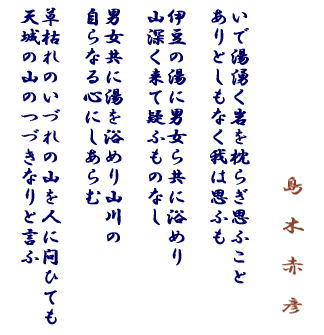 島木赤彦
いで湯湧く岩を枕らぎ思ふこと
ありとしもなく我は思ふも
伊豆の湯に男女ら共に浴めり
山深く来て疑ふものなし
男女共に湯を浴めり山川の
自らなる心にしあらむ
草枯れのいづれの山を人に問ひても
天城の山のつづきなりと言ふ